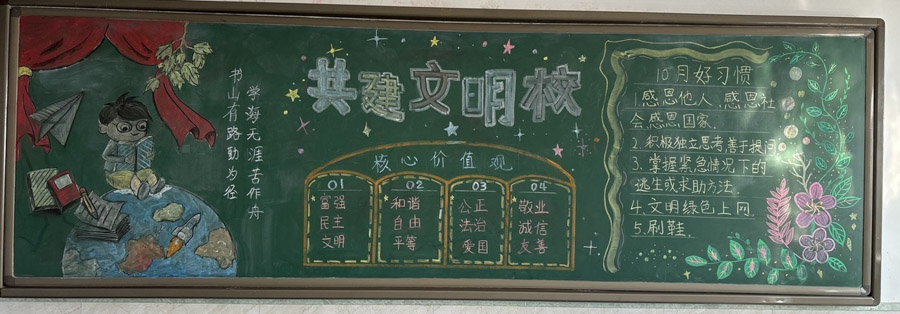 书山有路勤为径
学海无涯苦作舟
共建文明校
核心价值观
01
富强
民主
文明
02
和谐
自由
平等
03
公正
法治
爱国
04
敬业
诚信
友善
10月好习惯
1.感恩他人、感恩社
会感恩国家.
2.积极独立思考善于提问
3.掌握紧急情况下的
逃生或求助方法.
4.文明绿色上网.
5.刷鞋.